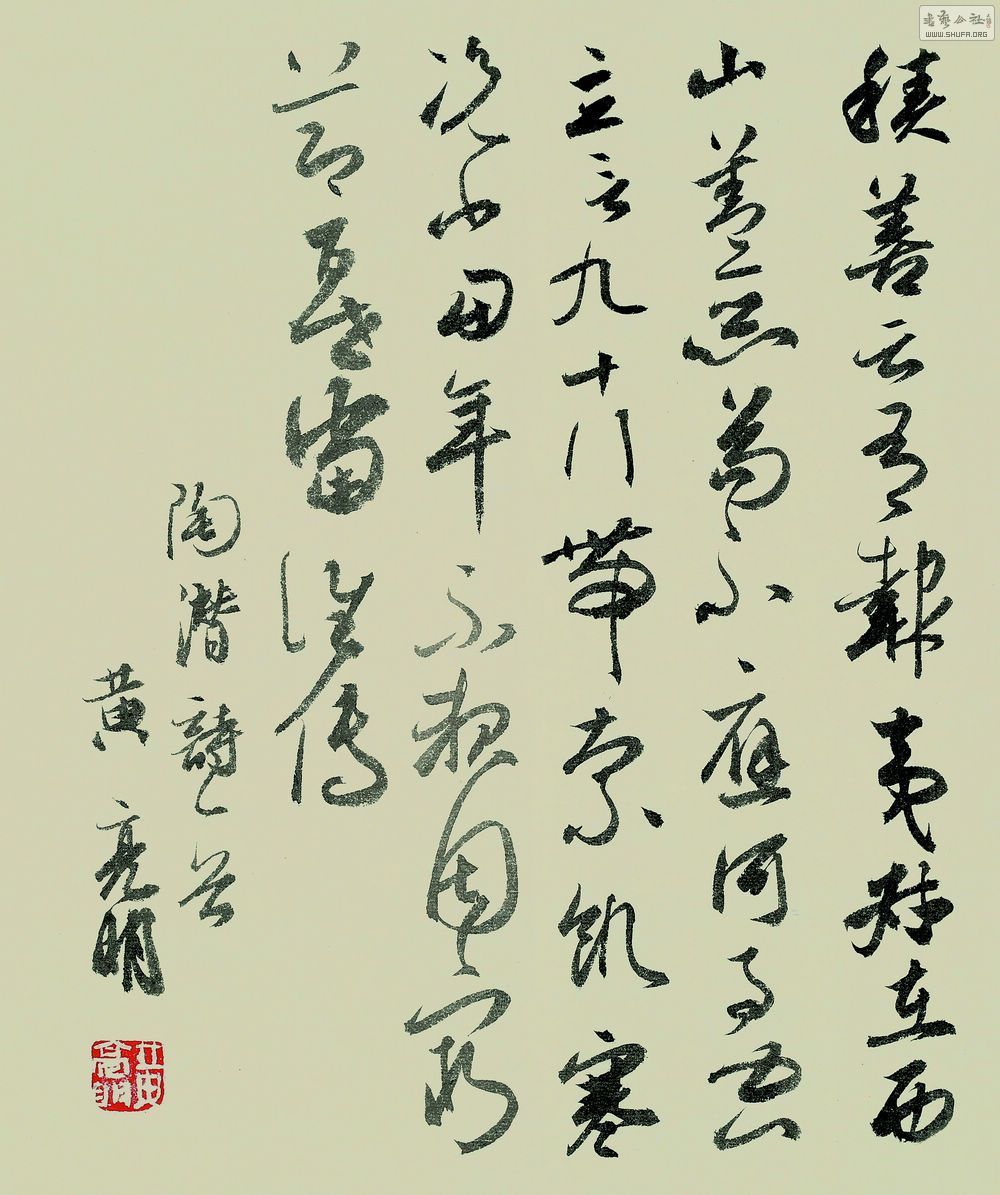 積善云有報夷叔在西
山善惡苟不應何事空
立言九十行帶索飢寒
況當年不賴固窮
節百世當誰傳
陶潛詩一首
黃亮明
书艺公社
WWW.SHUFA.ORG